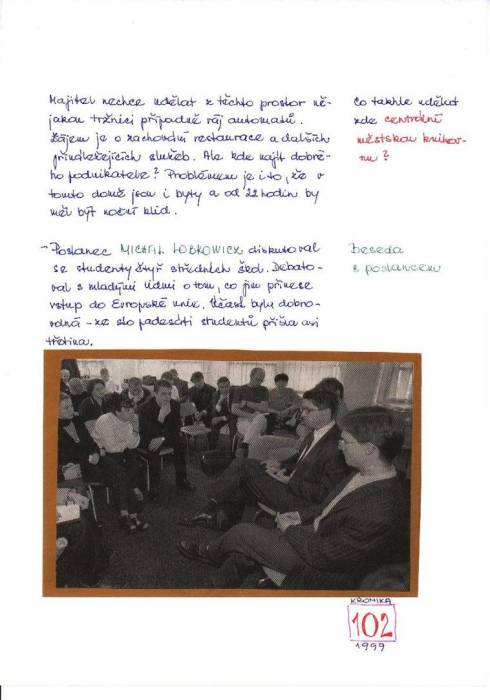 Majitel nechce udělat z těchto prostor ně-
jakou tržnici případně ráj automatů.
Zájem je o zachování restaurace a dalších
přináležejících služeb. Ale kde najít dobré-
ho podnikatele? Problémem je i to, že v
tomto domě jsou i byty a od 22 hodin by
měl být noční klid.
Co takhle udělat
zde centrální
městskou knihov-
nu?
- Poslanec MICHAL LOBKOWICZ diskutoval
se studenty čtyř středních škol. Debato-
val s mladými lidmi o tom, co jim přinese
vstup do Evropské unie. Účast byla dobro-
volná - ze sto padesáti studentů přišla asi
třetina.
beseda
s poslancem
KRONIKA
102
1999